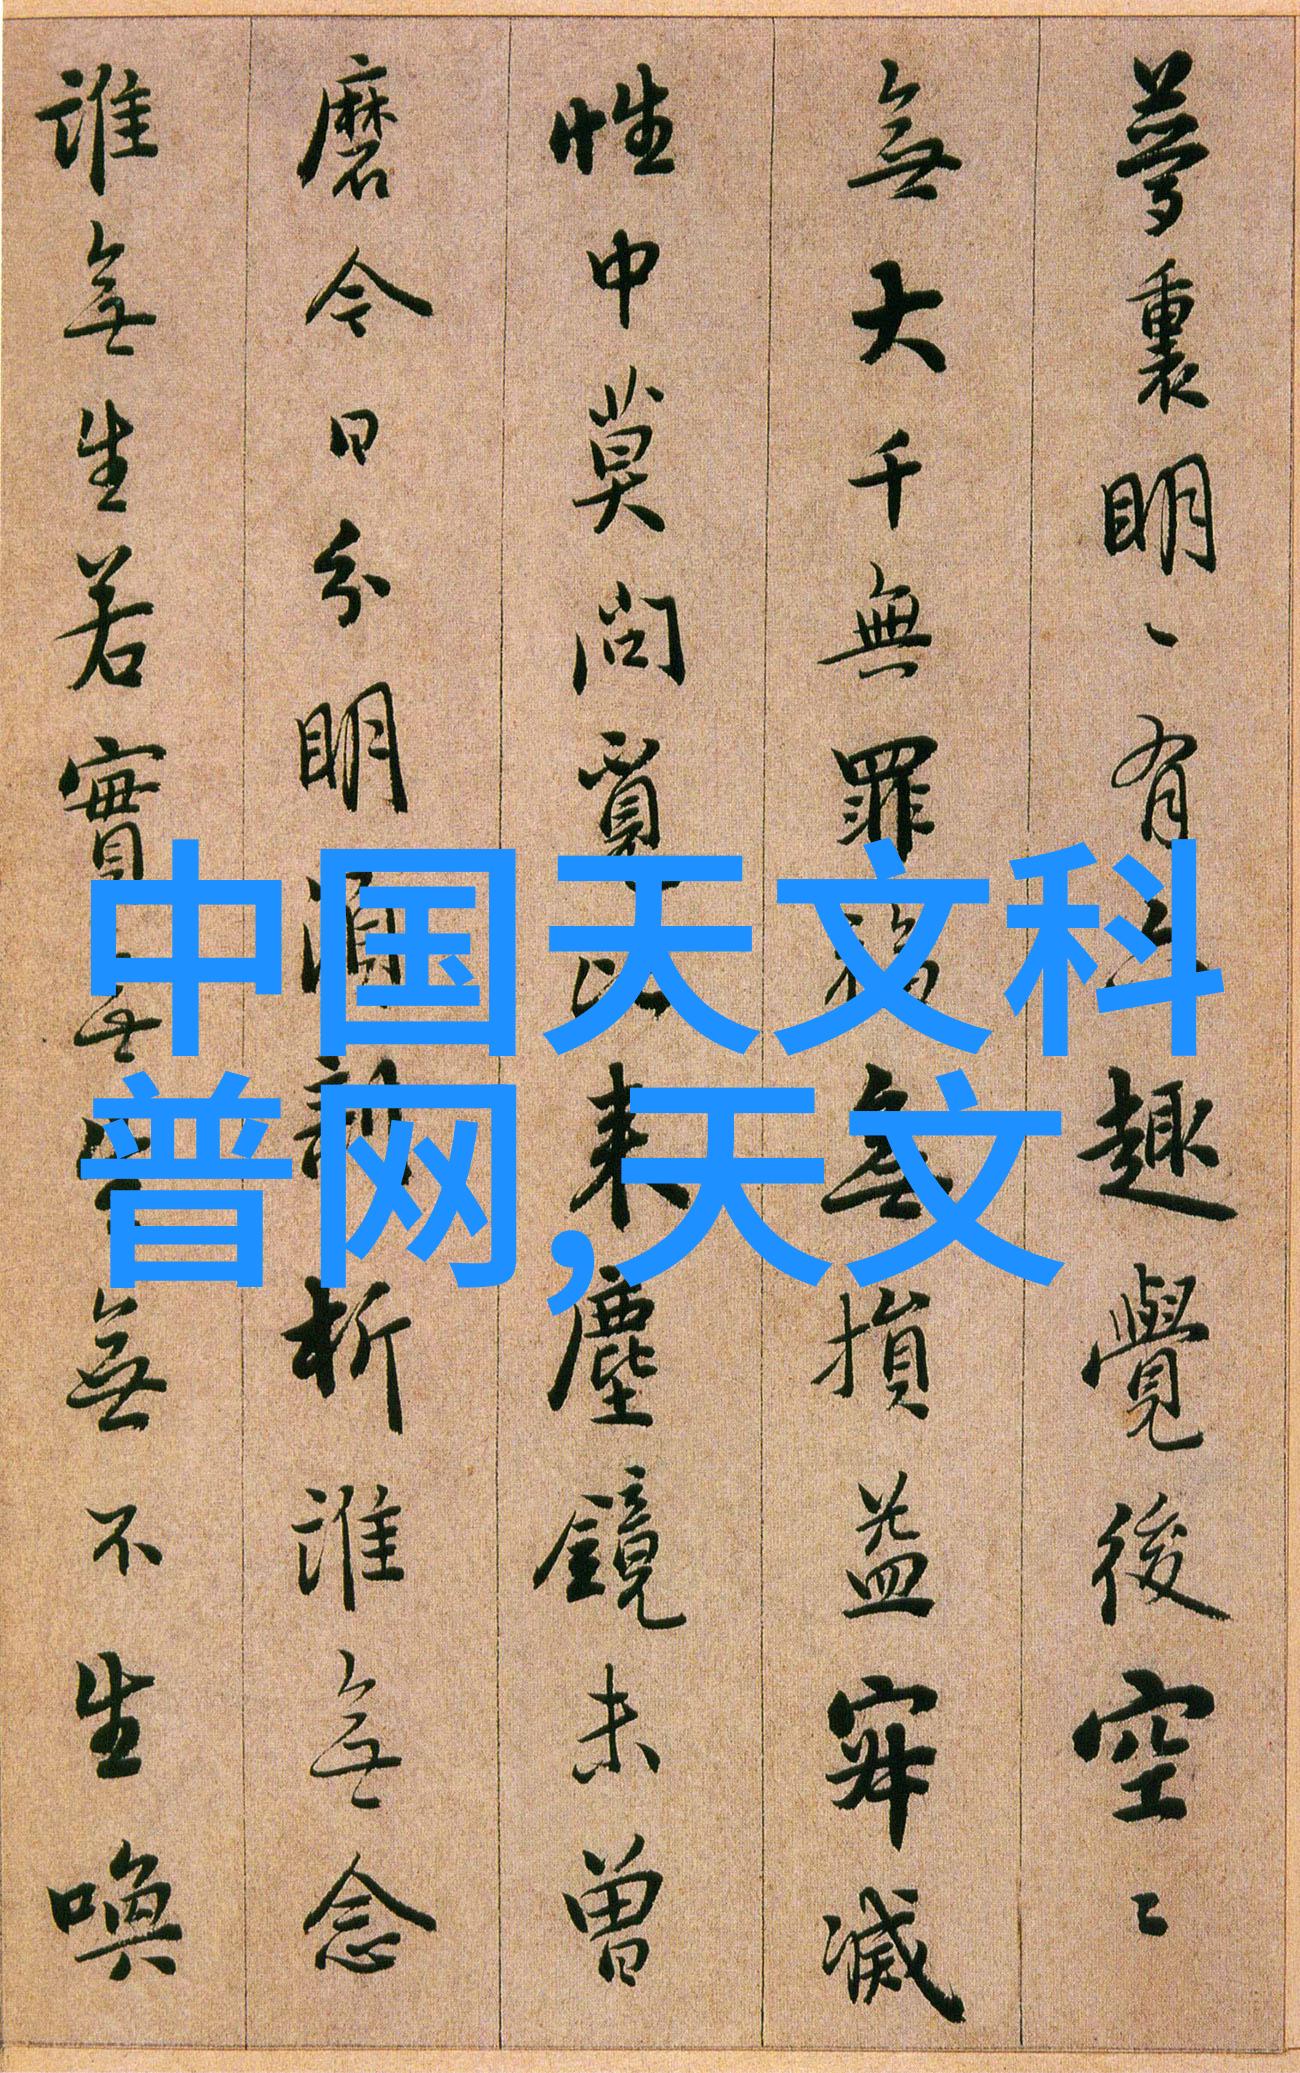 夢裏明〻有六趣覺後空〻
無大千無罪福無損益寂滅
性中莫問覓比来塵鏡未曾
磨今日分明須剖析誰無念
誰無生若實無生無不生喚
中国天文科
普网,天文